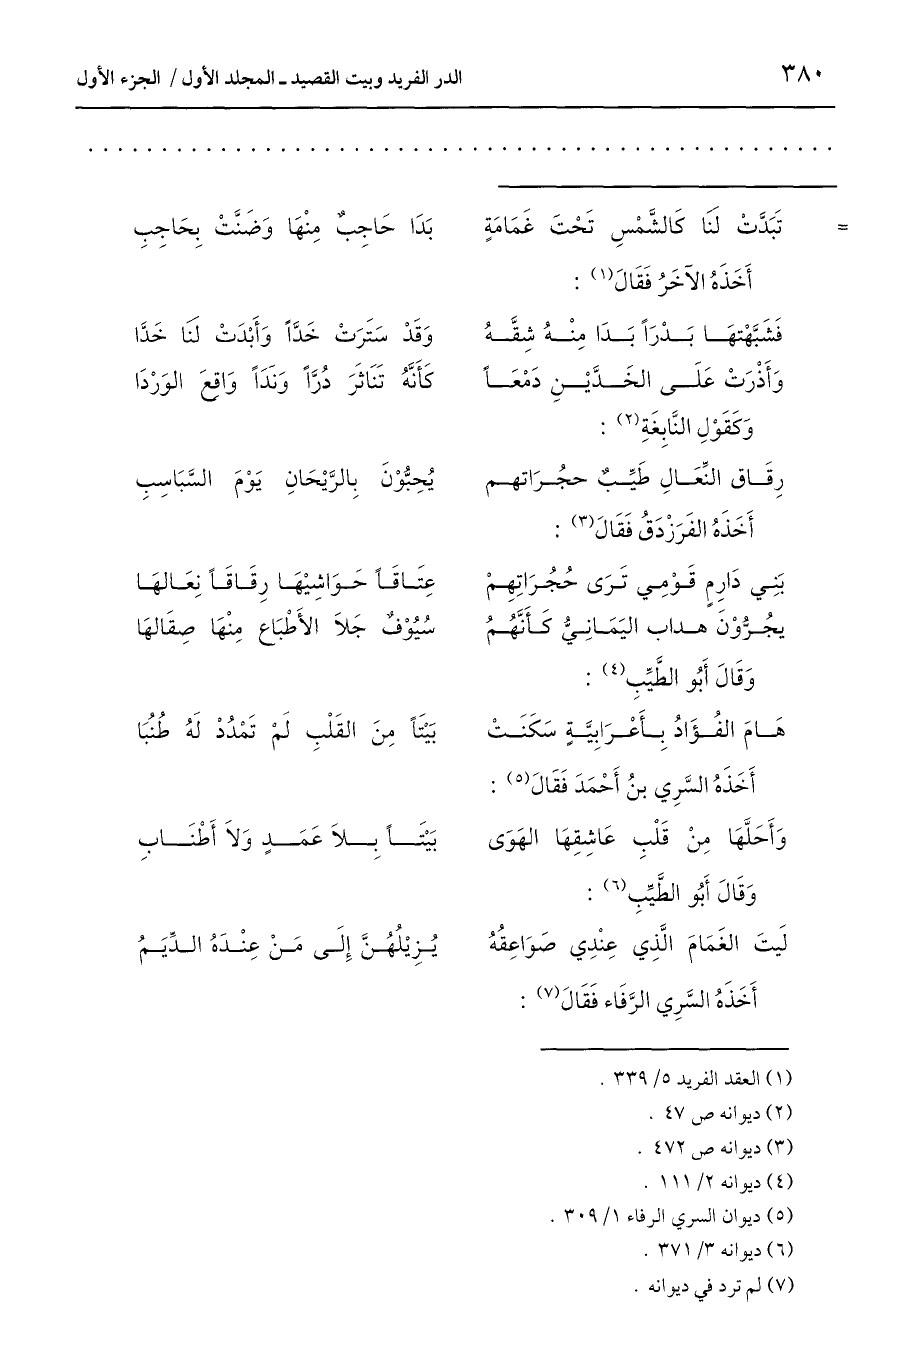 ٣٨٠ الدر الفريد وبيت القصيد ـ المجلد الأول / الجزء الأول
= تَبَدَّتْ لَنَا كَالشَّمْسِ تَحْتَ غَمَامَةٍ بَدَا حَاجِبٌ مِنْهَا وَضَنَّتْ بِحَاجِبِ
أَخَذَهُ الآخَرُ فَقَالَ(١) :
فَشَبَّهْتهَا بَدْرَاً بَدَا مِنْهُ شِقَّهُ وَقَدْ سَتَرَتْ خَدَّاً وَأَبْدَتْ لَنَا خَدَّا
وَأَذْرَتْ عَلَى الخَدَّيْنِ دَمْعَاً كَأَنَّهُ تَنَاثَرَ دُرَّاً وَنَدَاً وَاقِعَ الوَرْدَا
وَكَقَوْلِ النَّابِغَةِ(٢) :
رِقَاق النِّعَالِ طَيِّبٌ حجُرَاتهم يُحِبُّوْنَ بِالرَّيْحَانِ يَوْمَ السَّبَاسِبِ
أَخَذَهُ الفَرَزْدَقُ فَقَالَ(٣) :
بَنِي دَارِمٍ قَوْمِي تَرَى حُجُرَاتِهِمْ عِتَاقَاً حَوَاشِيْهَا رِقَاقَاً نِعَالهَا
يجُرُّوْنَ هداب اليَمَانِيُّ كَأَنَّهُمُ سُيُوْفٌ جَلاَ الأَطْبَاع مِنْهَا صِقَالهَا
وَقَالَ أَبُو الطَّيِّبِ(٤) :
هَامَ الفُؤَادُ بِأَعْرَابِيَّةٍ سَكَنَتْ بَيْتَاً مِنَ القَلْبِ لَمْ تَمْدُدْ لَهُ طُنُبَا
أَخَذَهُ السَّرِي بنُ أَحْمَدَ فَقَالَ(٥) :
وَأَحَلَّهَا مِنْ قَلْبِ عَاشِقِهَا الهَوَى بَيْتَاً بِلاَ عَمَدٍ وَلاَ أَطْنَابِ
وَقَالَ أَبُو الطَّيِّبِ(٦) :
لَيتَ الغَمَامَ الَّذِي عِنْدِي صَوَاعِقُهُ يُزِيْلُهُنَّ إِلَى مَنْ عِنْدَهُ الدِّيَمُ
أَخَذَهُ السَّرِي الرَّفَاء فَقَالَ(٧) :
(١) العقد الفريد ٥/ ٣٣٩ .
(٢) ديوانه ص ٤٧ .
(٣) ديوانه ص ٤٧٢ .
(٤) ديوانه ٢/ ١١١ .
(٥) ديوان السري الرفاء ١/ ٣٠٩ .
(٦) ديوانه ٣/ ٣٧١ .
(٧) لم ترد في ديوانه .